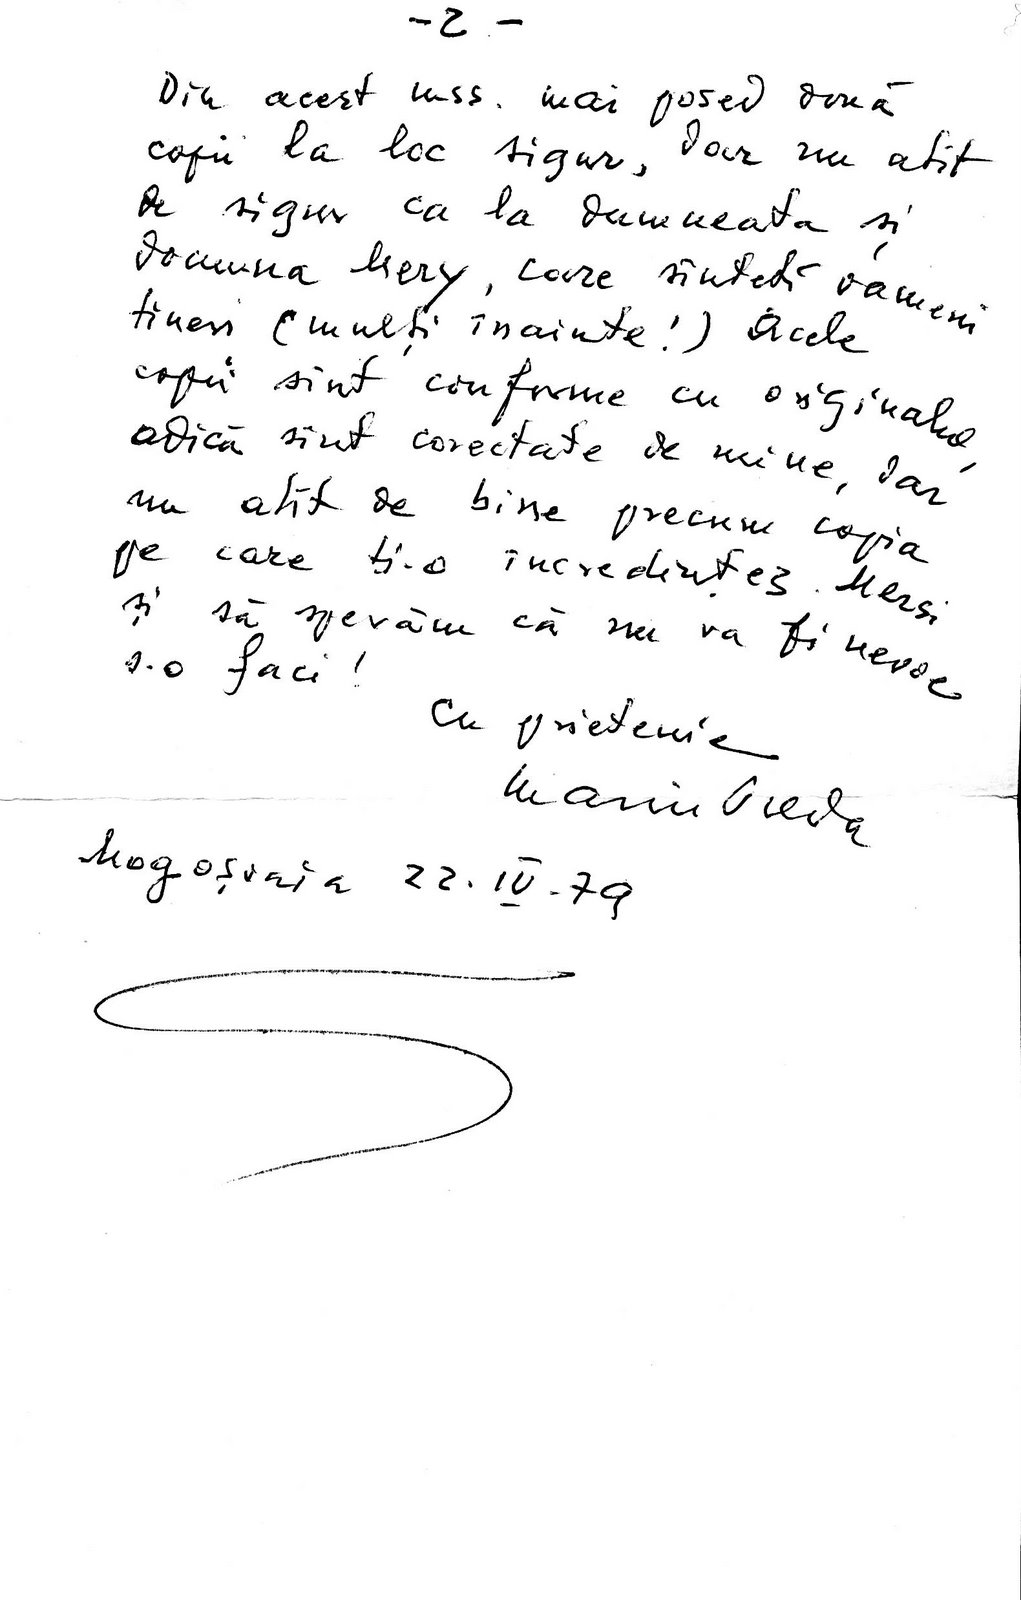 - 2 -
Din acest mss. mai posed două
copii la loc sigur, dar nu atît
de sigur ca la dumneata și
domna Mery, care sînteți oameni
tineri (mulți înainte!) Acele
copii sînt conforme cu originalul,
adică sînt corectate de mine, dar
nu atît de bine precum copia
pe care ți-o încredințez. Mersi
și să sperăm că nu va fi nevoe
s-o faci!
Cu prietenie
Marin Preda
Mogoșoaia 22.IV.79